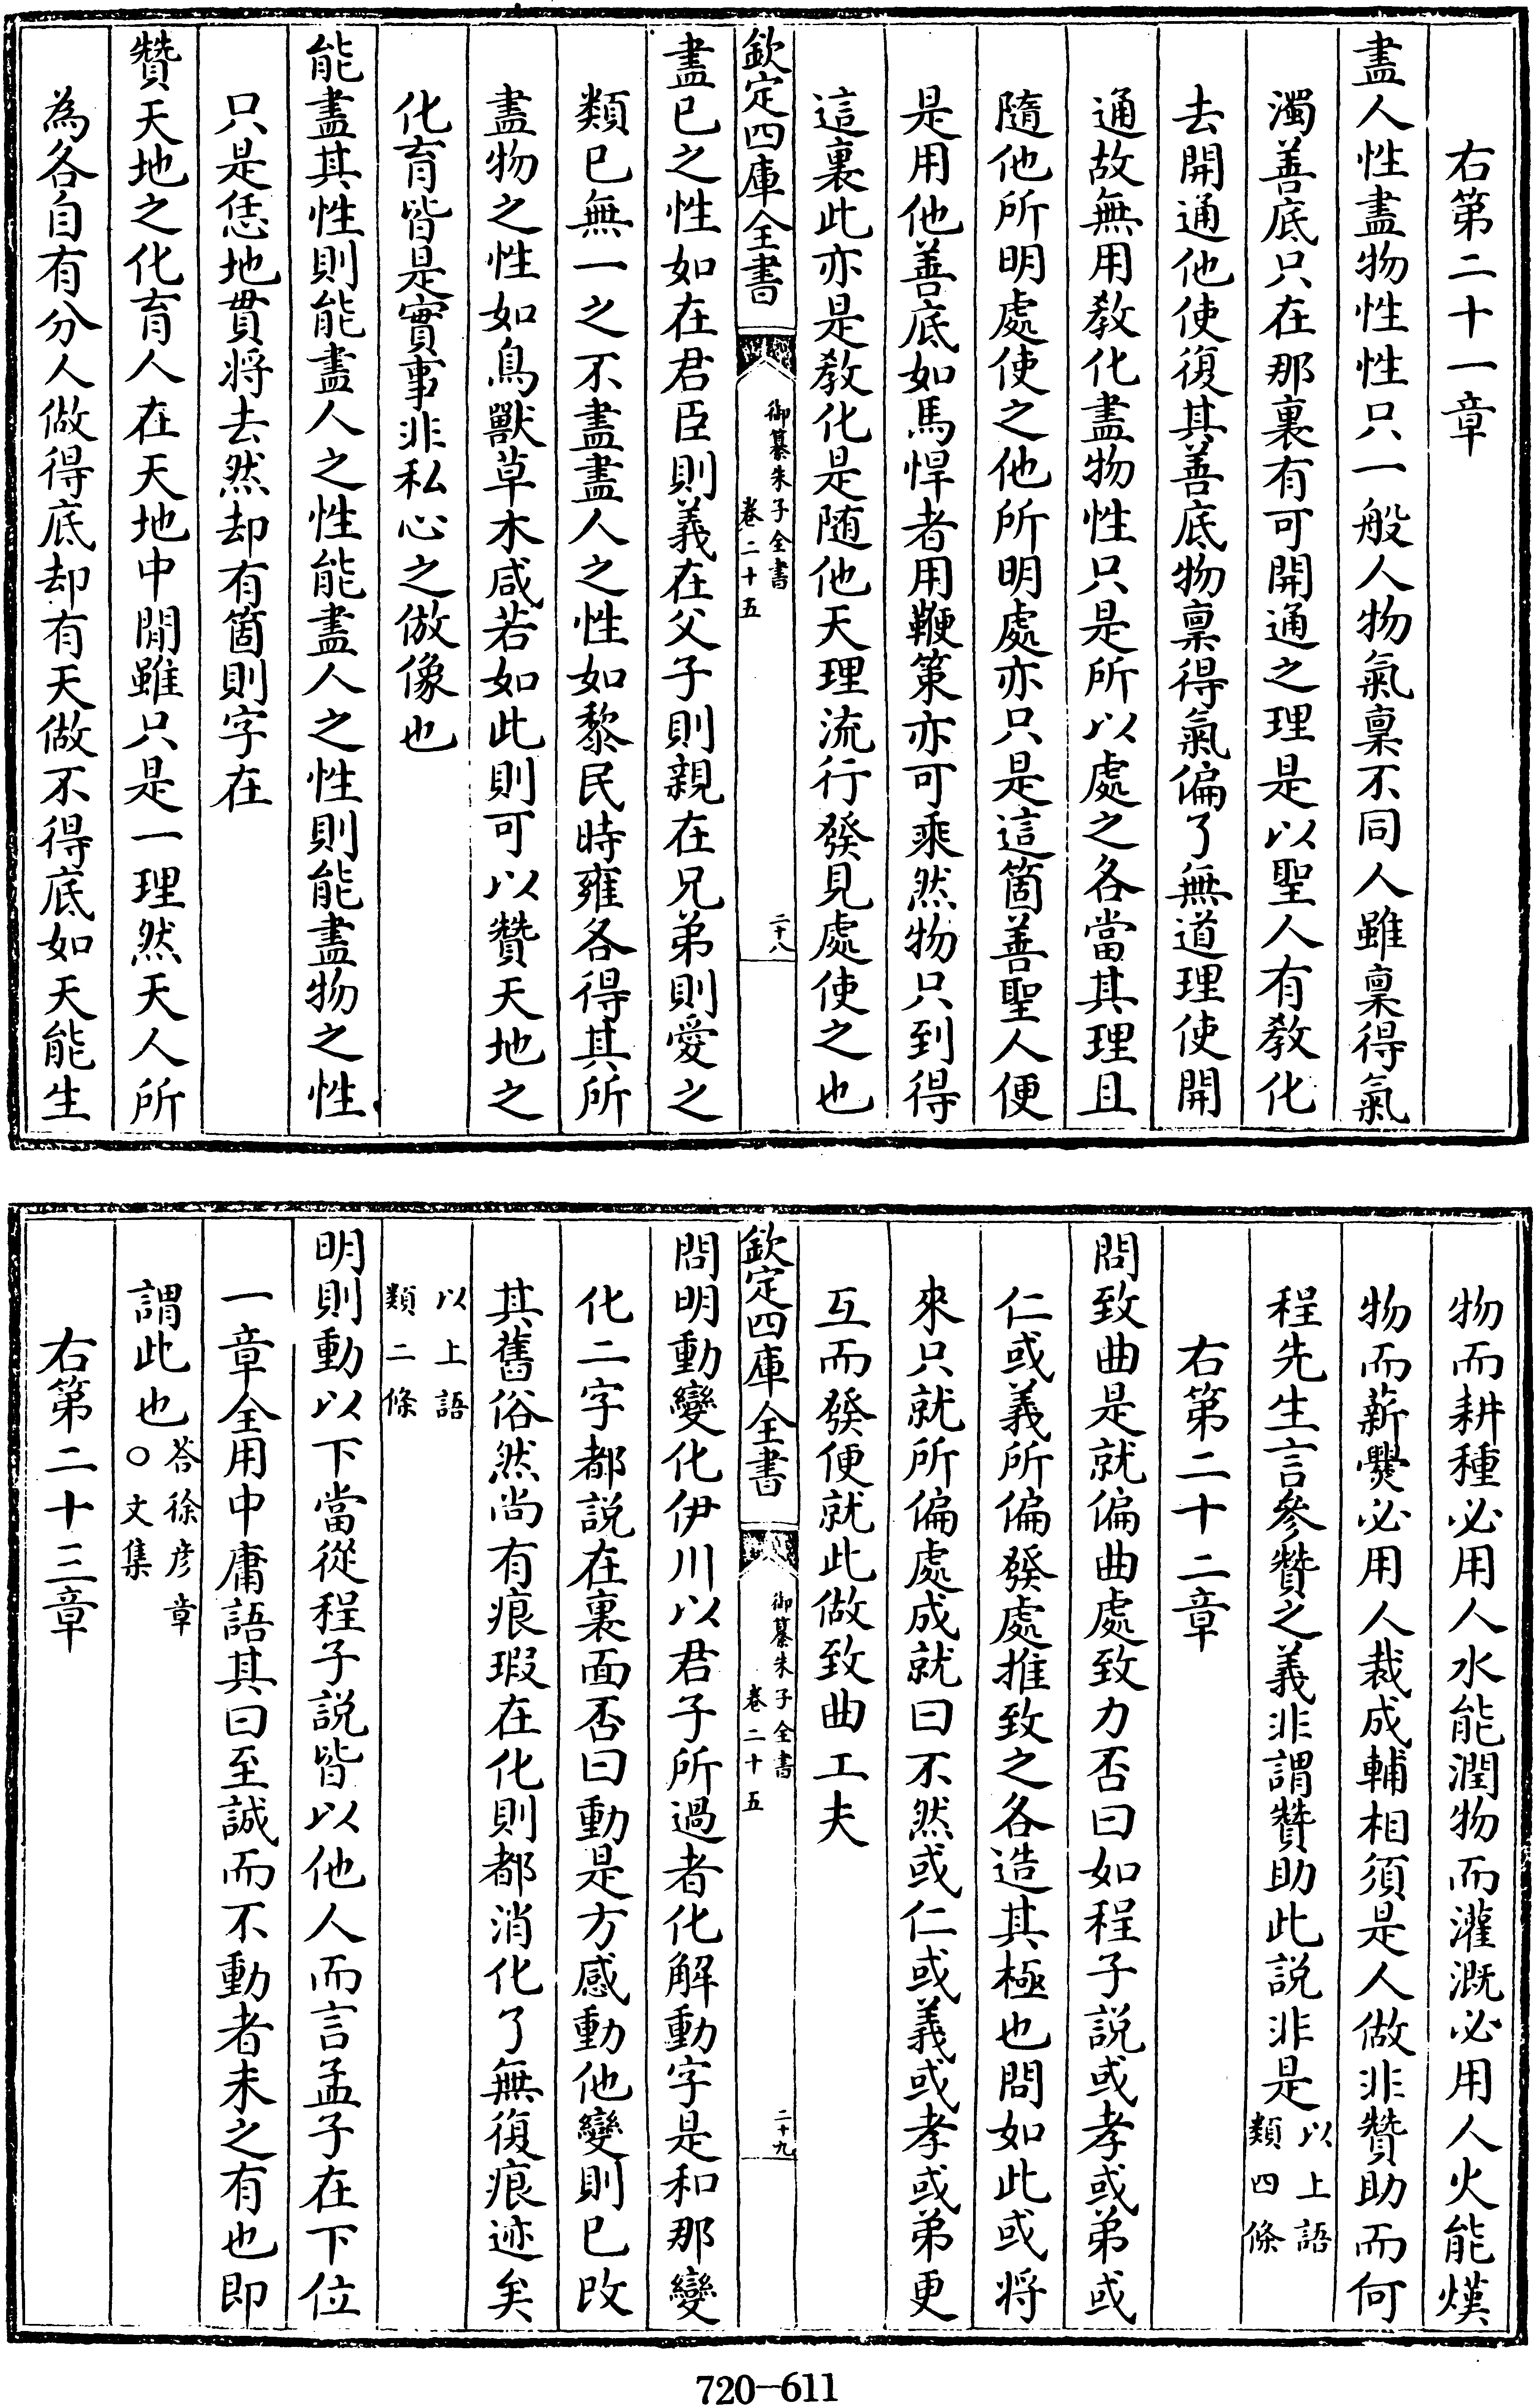 右第二十一章
盡人性盡物性性只一般人物氣稟不同人雖稟得氣
濁善底只在那裏有可開通之理是以聖人有教化
去開通他使復其善底物稟得氣偏了無道理使開
通故無用教化盡物性只是所以處之各當其理且
隨他所明處使之他所明處亦只是這箇善聖人便
是用他善底如馬悍者用鞭策亦可乘然物只到得
這裏此亦是教化是随他天理流行發見處使之也
欽定四庫全書
御纂朱子全書
卷二十五
二十八
盡已之性如在君臣則義在父子則親在兄弟則愛之
類已無一之不盡盡人之性如黎民時雍各得其所
盡物之性如鳥獸草木咸若如此則可以贊天地之
化育皆是實事非私心之倣像也
能盡其性則能盡人之性能盡人之性則能盡物之性
只是恁地貫将去然却有箇則字在
贊天地之化育人在天地中閒雖只是一理然天人所
為各自有分人做得底却有天做不得底如天能生
物而耕種必用人水能潤物而灌溉必用人火能熯
物而薪爨必用人裁成輔相須是人做非贊助而何
程先生言參贊之義非謂贊助此説非是以上語類四條
右第二十二章
問致曲是就偏曲處致力否曰如程子説或孝或弟或
仁或義所偏發處推致之各造其極也問如此或将
來只就所偏處成就曰不然或仁或義或孝或弟更
互而發便就此做致曲工夫
欽定四庫全書
御纂朱子全書
卷二十五
二十九
問明動變化伊川以君子所過者化解動字是和那變
化二字都説在裏面否曰動是方感動他變則已改
其舊俗然尚有痕瑕在化則都消化了無復痕迹矣
以上語類二條
明則動以下當從程子説皆以他人而言孟子在下位
一章全用中庸語其曰至誠而不動者未之有也即
謂此也答徐彦章○文集
右第二十三章
720-611